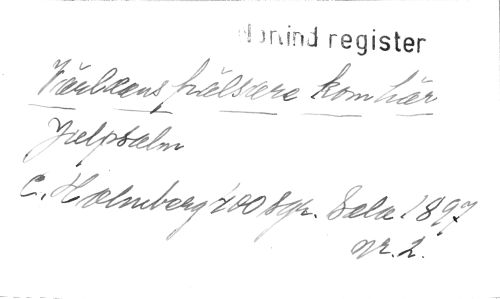 register
Världens frälsare kom här
Julpsalm
C. Holmberg 400 sgr. Sala 1897
nr. 2.